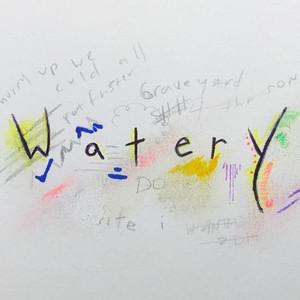 hurry up we
could all
rot faster
Graveyard
the son
Watery
DO
site i